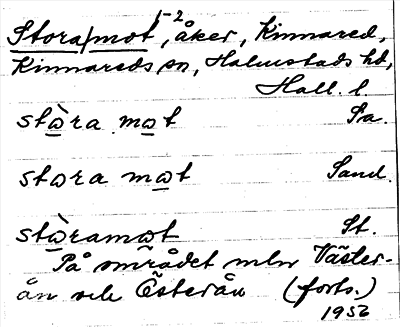 Stora/mot 1-2, åker, Kinnared,
Kinnareds sn, Halmstads hd,
Hall. l.
stàra mat Sa.
stara mat Sand.
stàramat St.
På området mln Väster-
ån och Österån (forts.)
1956